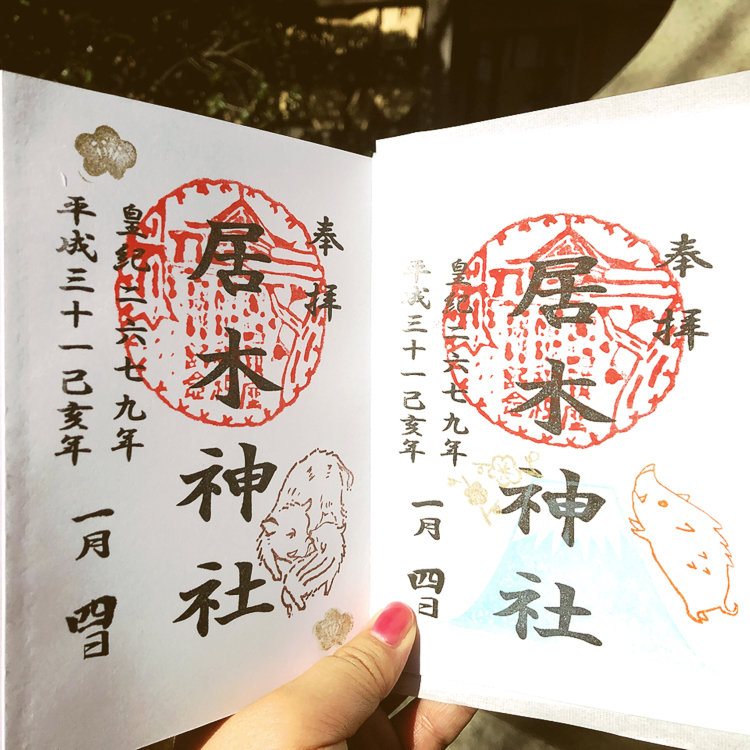 奉拝
居木神社
皇紀二六七九年
平成三十一己亥年
一月四日
奉拝
居木神社
皇紀二六七九年
平成三十一己亥年
一月四日